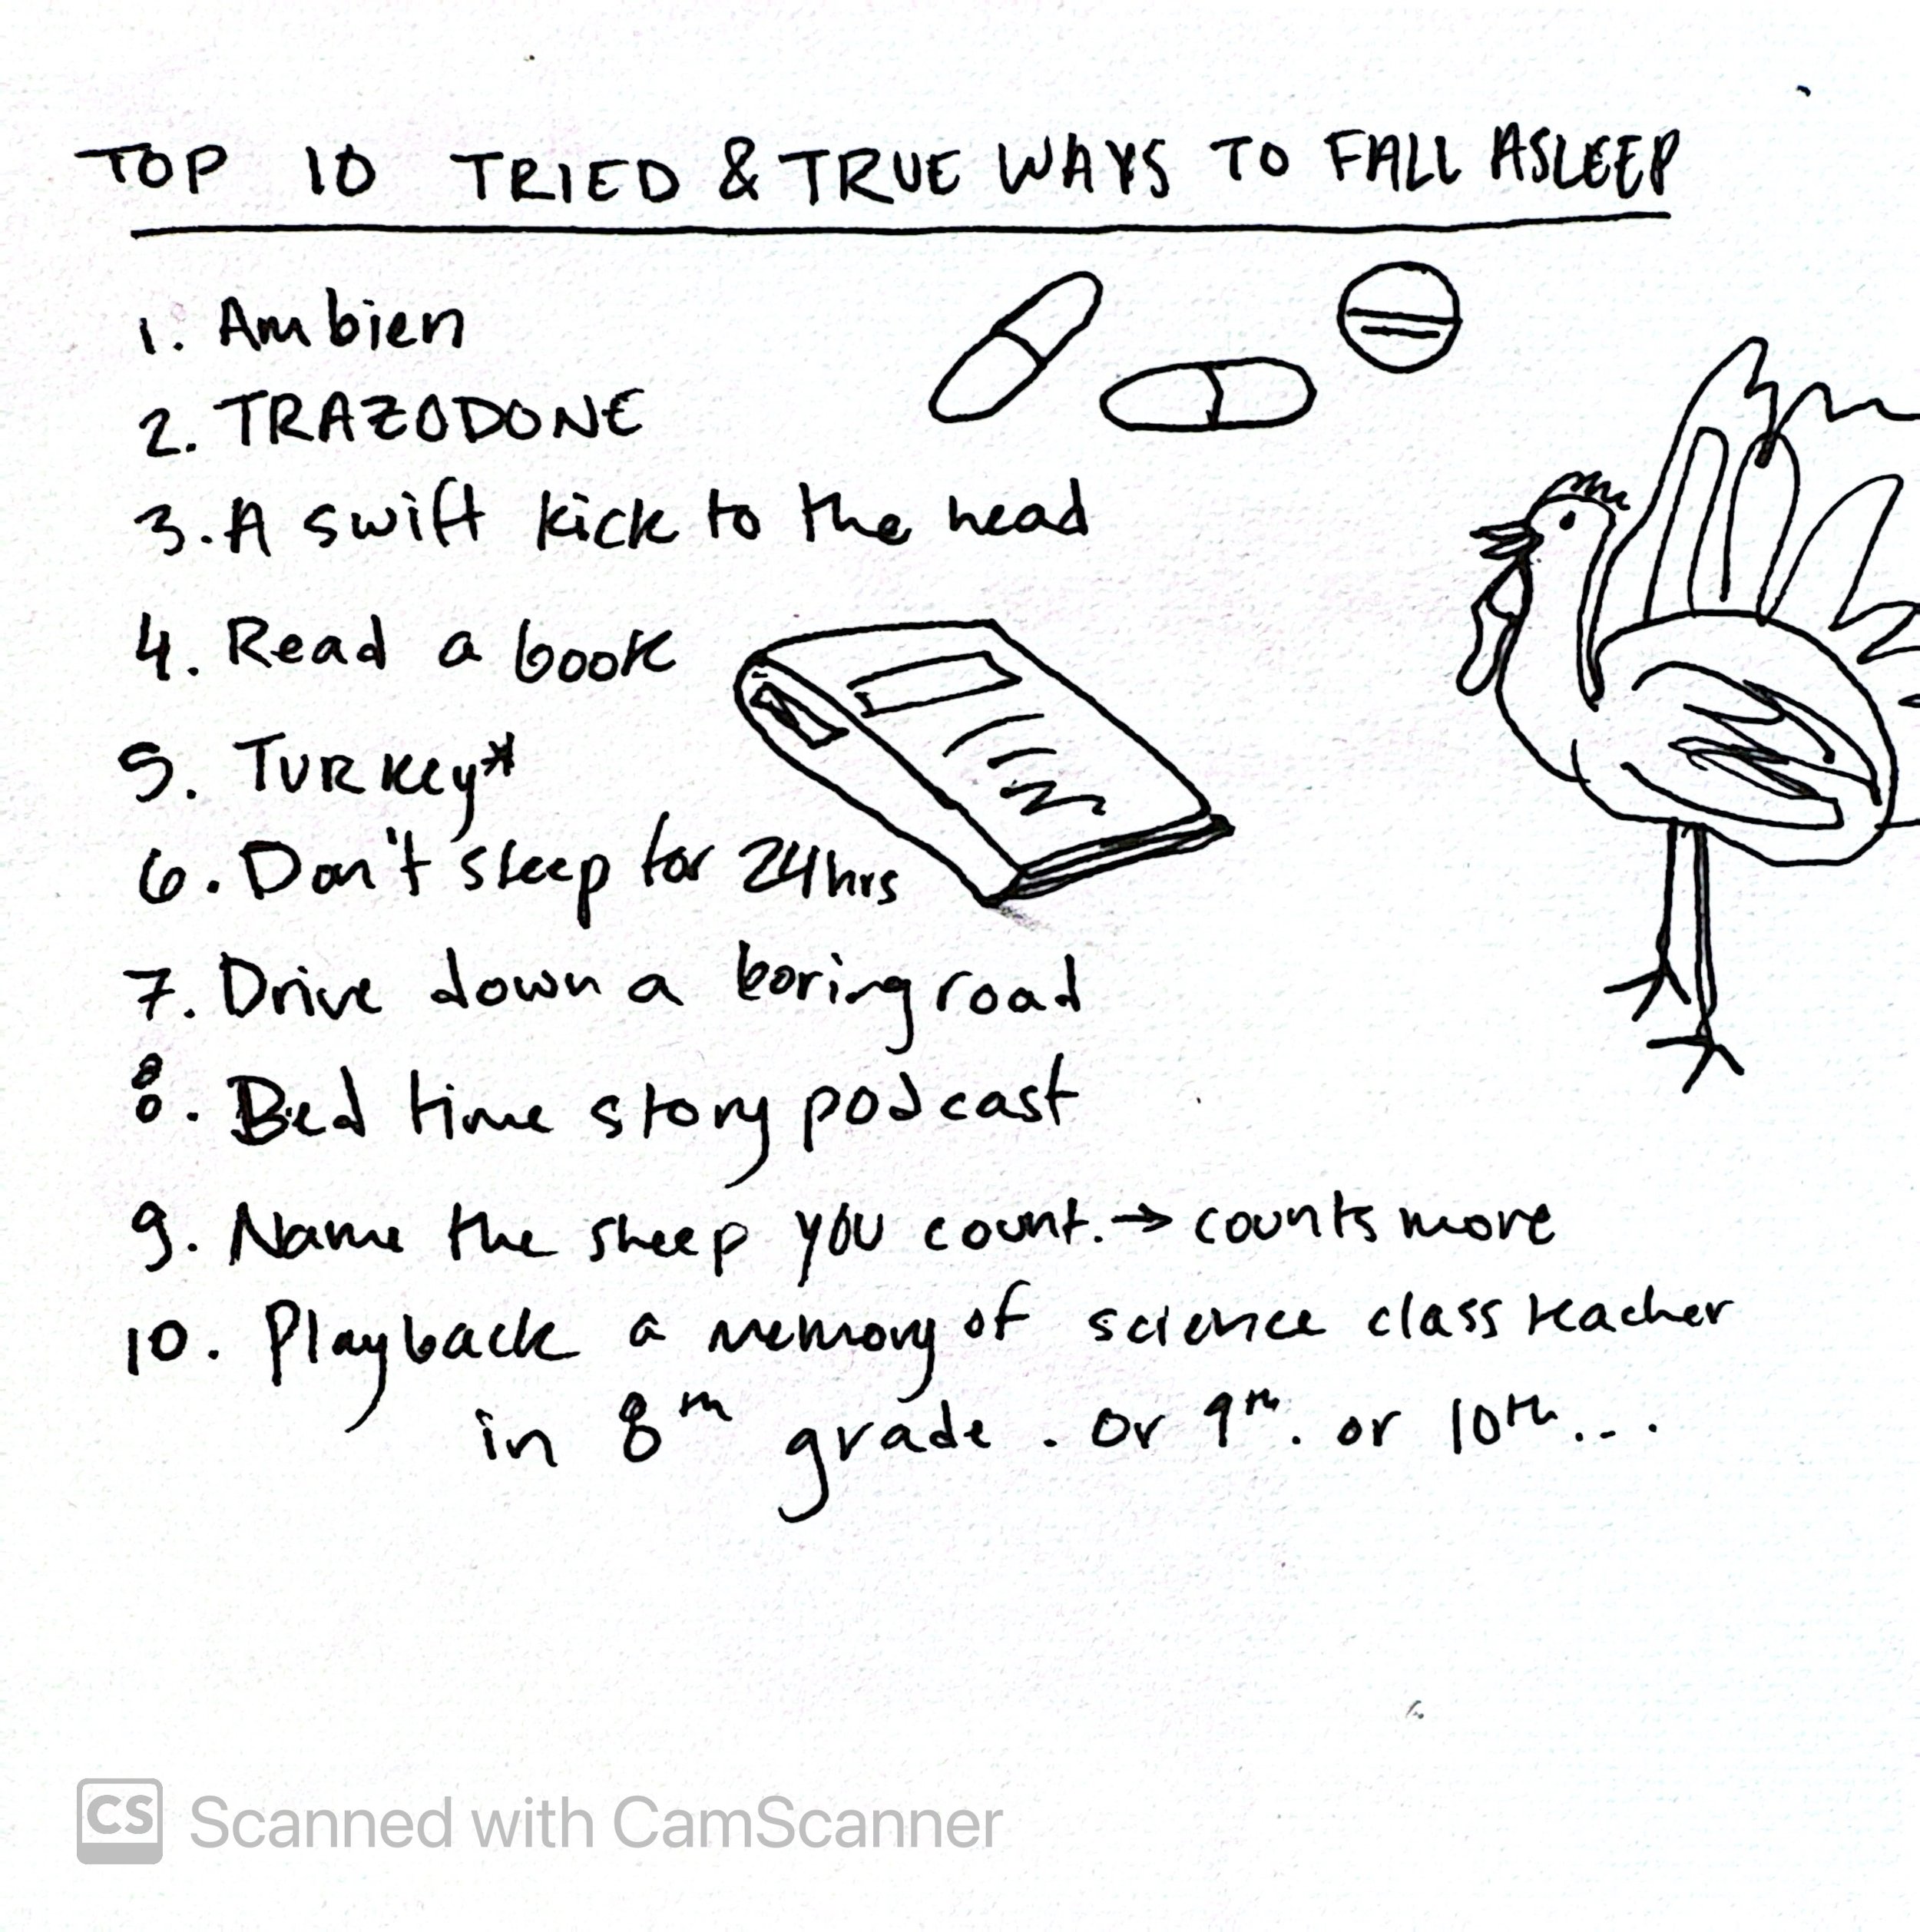 TOP 10 TRIED & TRUE WAYS TO FALL ASLEEP
1. Ambien
2. TRAZODONE
3. A swift kick to the head
4. Read a book
5. TURKey*
6. Don't sleep for 24hrs
7. Drive down a boring road
8. Bed time story podcast
9. Name the sheep you count. → counts more
10. Playback a memory of science class teacher
in 8th grade. or 9th. or 10th...
CS Scanned with CamScanner